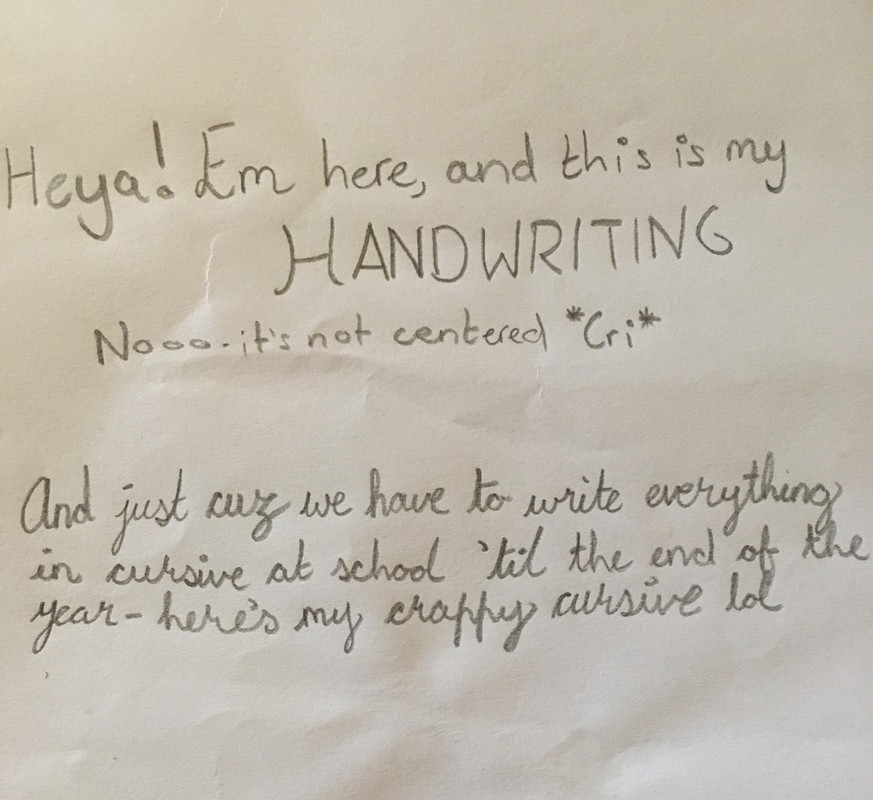 Heya! Em here, and this is my
HANDWRITING
Nooo. it's not centered *Cri*
And just cuz we have to write everything
in cursive at school 'til the end of the
year - here's my crappy cursive lol